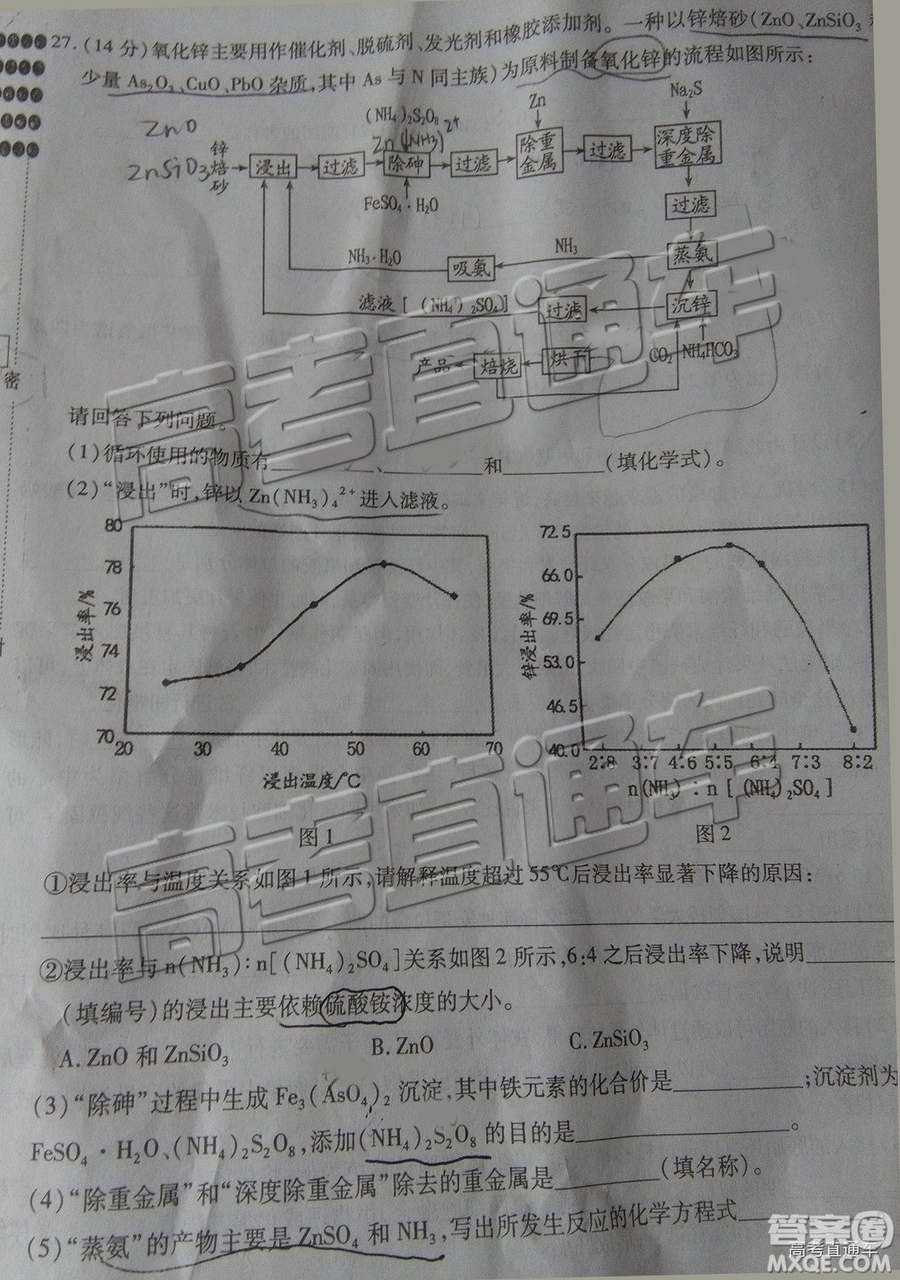 27.(14分)氧化锌主要用作催化剂、脱硫剂、发光剂和橡胶添加剂。一种以锌焙砂(ZnO、ZnSiO₃
少量As₂O₃、CuO、PbO杂质,其中As与N同主族)为原料制备氧化锌的流程如图所示:
(NH₄)₂S₂O₈
Zn
Na₂S
ZnO
Zn(NH3)²⁺
ZnSiO3
锌焙砂
浸出
过滤
除砷
过滤
除重金属
过滤
深度除重金属
FeSO₄·H₂O
过滤
NH₃·H₂O
吸氨
NH₃
蒸氨
滤液[(NH₄)₂SO₄]
过滤
沉锌
产品
焙烧
烘干
CO₂
NH₄HCO₃
请回答下列问题。
(1)循环使用的物质有________、________和________(填化学式)。
(2)“浸出”时,锌以Zn(NH₃)₄²⁺进入滤液。
80
78
76
74
72
70
浸出率/%
20 30 40 50 60 70
浸出温度/℃
图1
72.5
66.0
69.5
53.0
46.5
40.0
锌浸出率/%
2:8 3:7 4:6 5:5 6:4 7:3 8:2
n(NH₃):n[(NH₄)₂SO₄]
图2
①浸出率与温度关系如图1所示,请解释温度超过55℃后浸出率显著下降的原因:
②浸出率与n(NH₃):n[(NH₄)₂SO₄]关系如图2所示,6:4之后浸出率下降,说明________
(填编号)的浸出主要依赖硫酸铵浓度的大小。
A.ZnO和ZnSiO₃ B.ZnO C.ZnSiO₃
(3)“除砷”过程中生成Fe₃(AsO₄)₂沉淀,其中铁元素的化合价是________;沉淀剂为
FeSO₄·H₂O、(NH₄)₂S₂O₈,添加(NH₄)₂S₂O₈的目的是________。
(4)“除重金属”和“深度除重金属”除去的重金属是________(填名称)。
(5)“蒸氨”的产物主要是ZnSO₄和NH₃,写出所发生反应的化学方程式________
密
高考直通车
高考直通车
答案圈
高考直通车
MXQE.COM